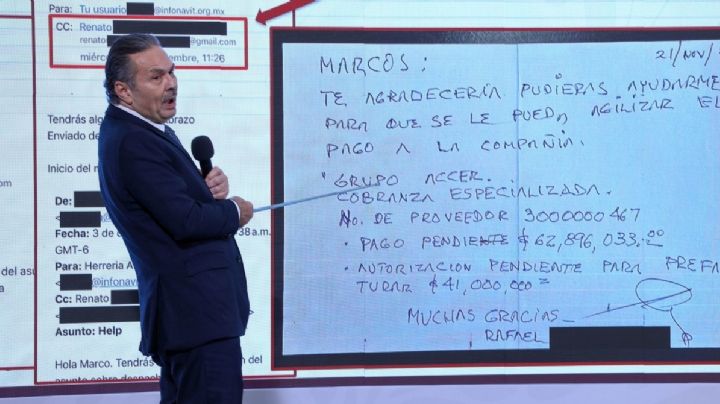 Para: Tu usuario @infonavit.org.mx
CC: Renato
renato @gmail.com
miércol embre, 11:26
Tendrás alg orazo
Enviado de
Inicio del m
De:
Fecha: 3 de 38 a.m.
GMT-6
Para: Herreria A
@infonavit
Cc: Renato
Asunto: Help
Hola Marco. Tendrás n del
21/NOV/
MARCOS:
TE AGRADECERÍA PUDIERAS AYUDARME
PARA QUE SE LE PUEDA AGILIZAR EL
PAGO A LA COMPAÑIA.
"GRUPO ACCER.
COBRANZA ESPECIALIZADA.
No. DE PROVEEDOR 3000000467
· PAGO PENDIENTE $62,896,033.00
· AUTORIZACION PENDIENTE PARA PREFA
TURAR $41,000,000=
MUCHAS GRACIAS
RAFAEL